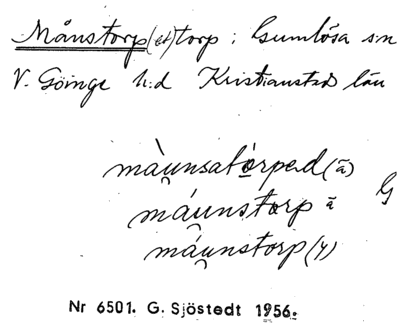 Månstorp(et) torp; Gumlösa s:n
V. Göinge h:d Kristianstad län
màu̯nsatòrped (ā)
máu̯nstorp ā
G
máu̯nstorp (y)
Nr 6501. G. Sjöstedt 1956.